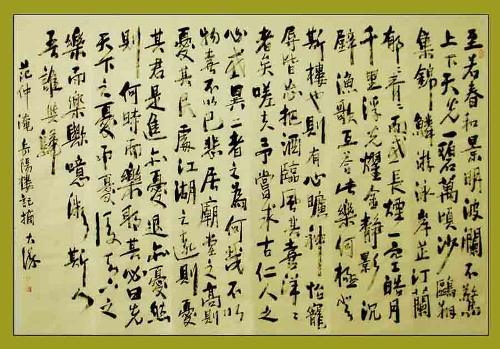 至若春和景明波瀾不驚
上下天光一碧萬頃沙鷗翔
集錦鱗游泳岸芷汀蘭
郁〻青〻而或長煙一空皓月
千里浮光耀金靜影沉
璧漁歌互答此樂何極登
斯樓也則有心曠神怡寵
辱皆忘把酒臨風其喜洋〻
者矣嗟夫予嘗求古仁人之
心或異二者之為何哉不以
物喜不以己悲居廟堂之高則
憂其民處江湖之遠則憂
其君是進亦憂退亦憂然
則何時而樂耶其必曰先
天下之憂而憂後天下之
樂而樂歟噫微斯人
吾誰與歸
范仲淹岳陽樓記摘 大